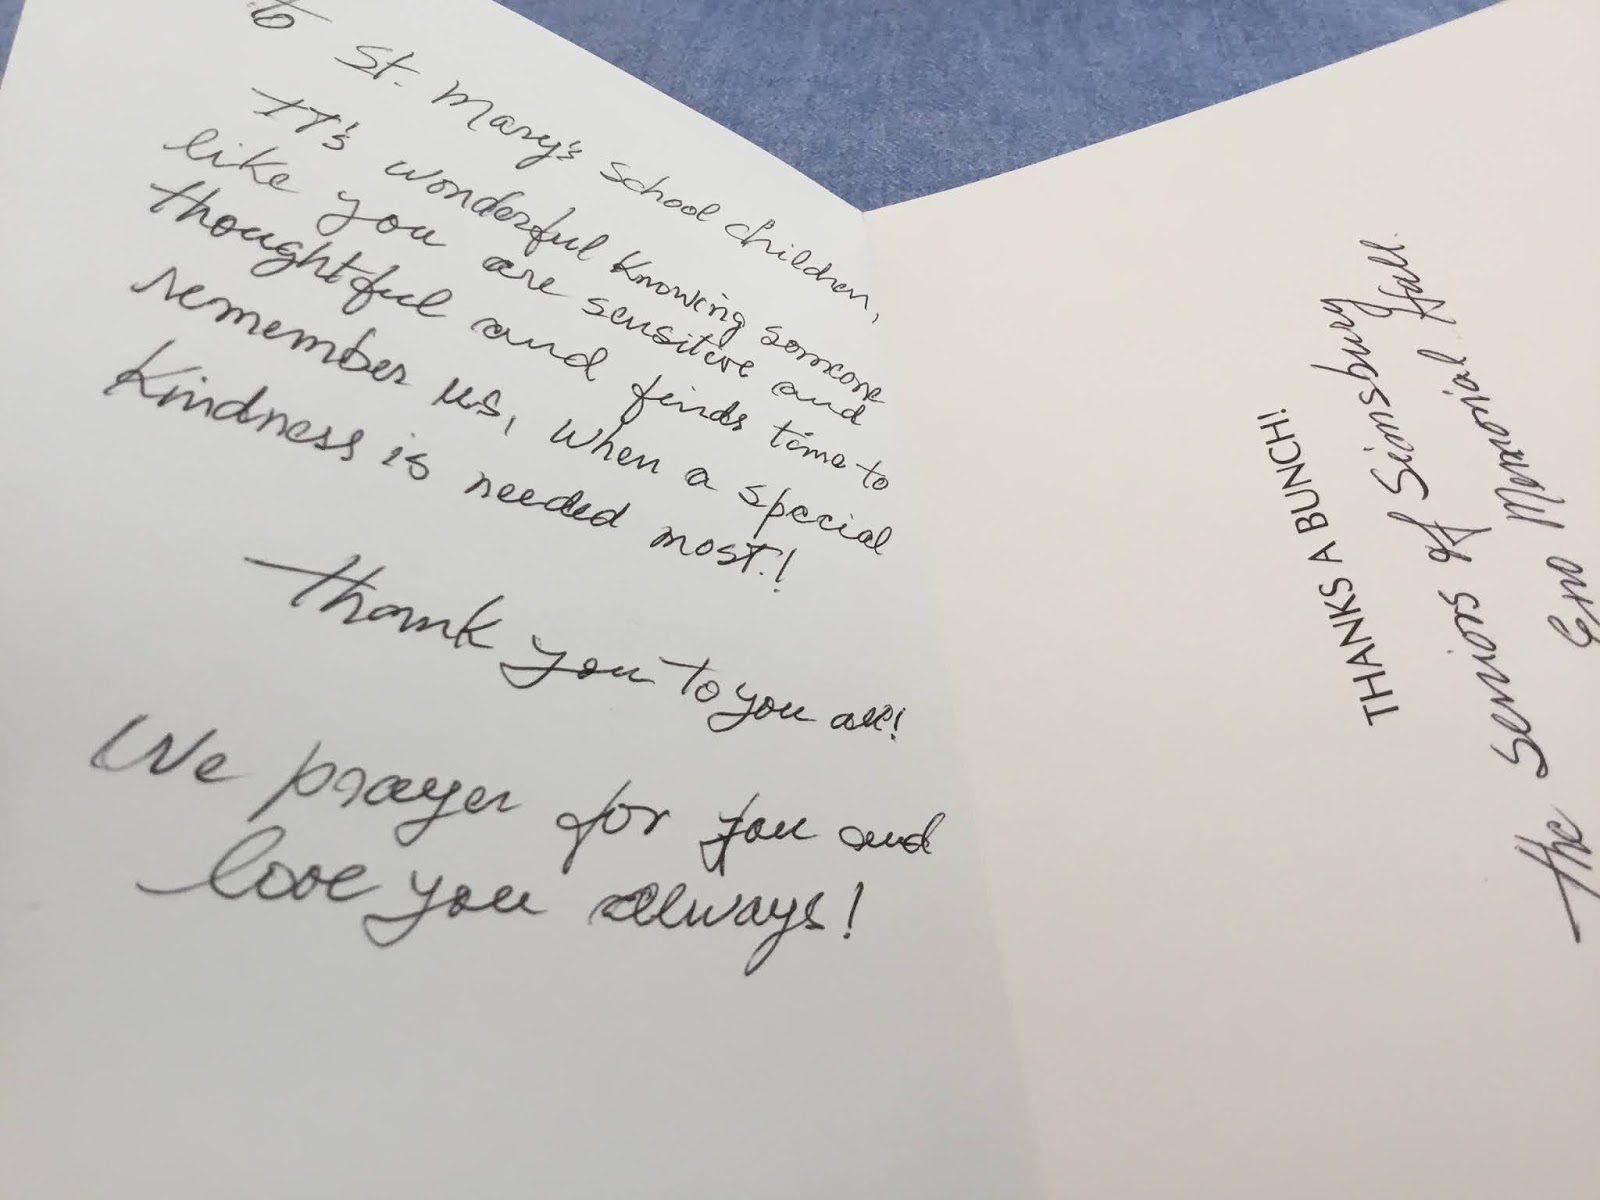 to St. Mary's School children,
IT's wonderful knowing someone
like you are sensitive and
thoughtful and finds time to
remember us, when a special
kindness is needed most!
Thank you to you all!
We prayer for you and
love you allways!
THANKS A BUNCH!
The Seniors of Simsbury
Eno Memorial Hall.